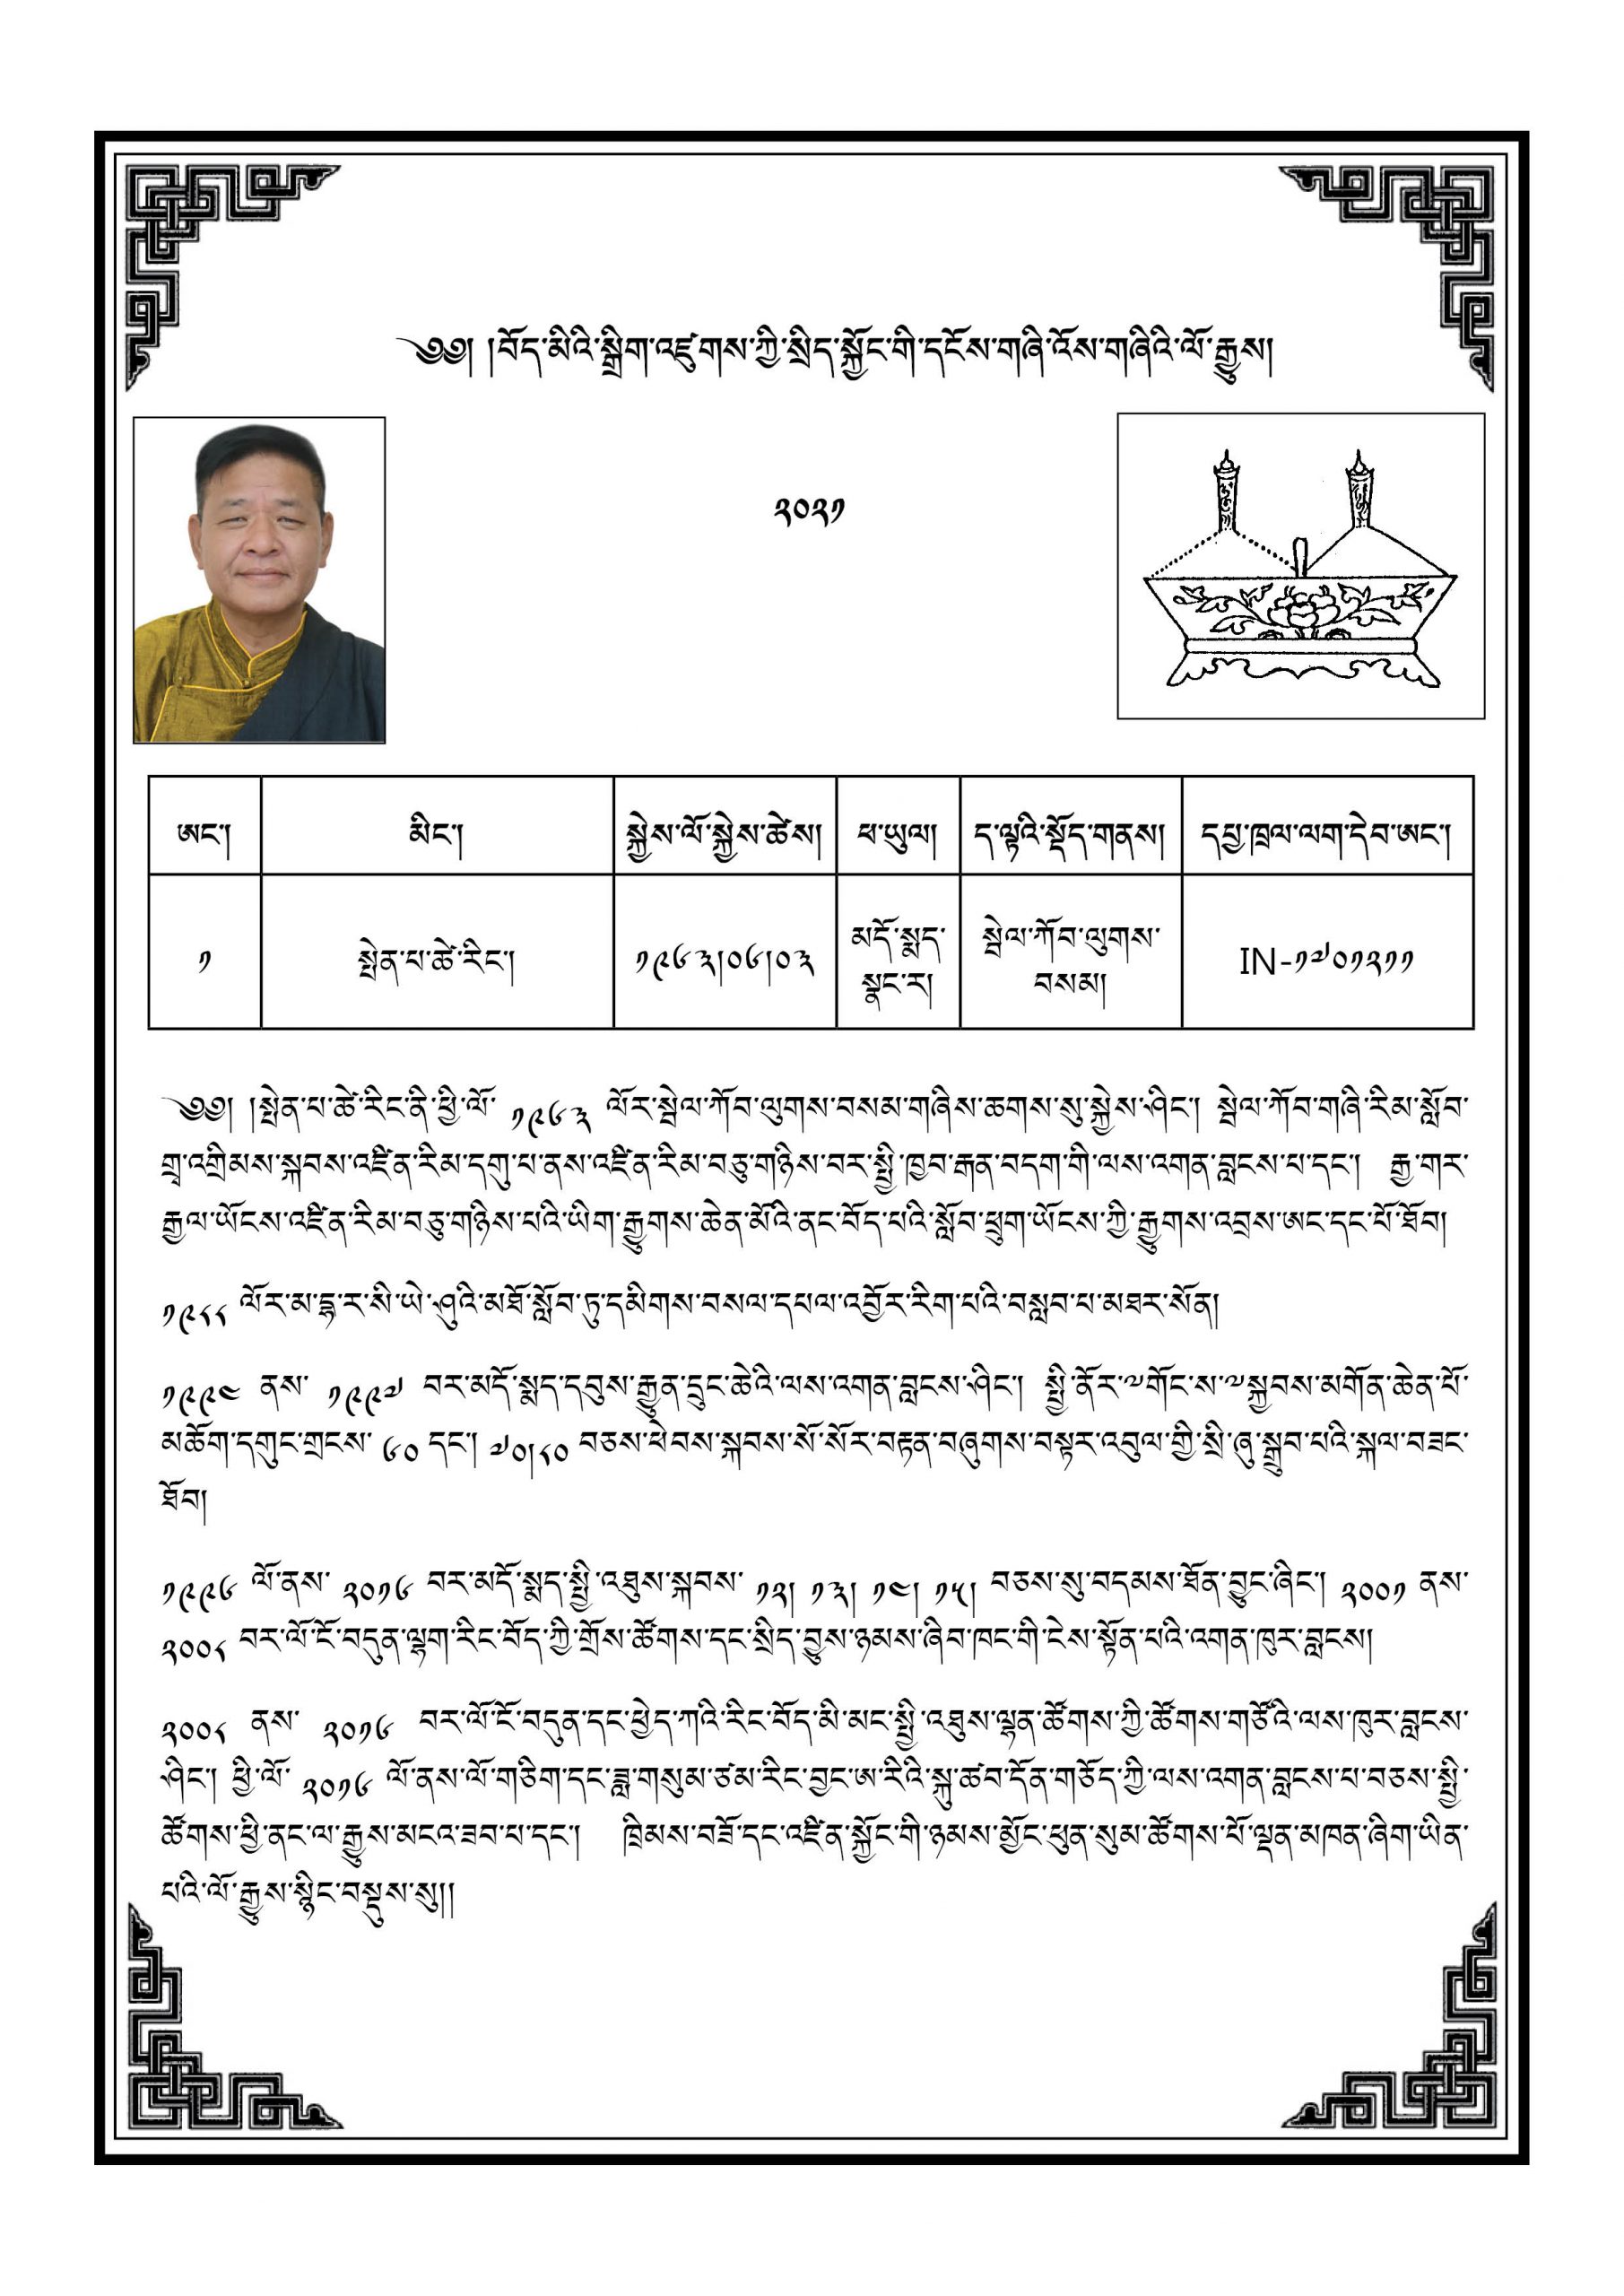 ༄༅། །བོད་མིའི་སྒྲིག་འཛུགས་ཀྱི་སྲིད་སྐྱོང་གི་དངོས་གཞི་འོས་གཞིའི་ལོ་རྒྱུས།
༢༠༢༡
ཨང་། མིང་། སྐྱེས་ལོ་སྐྱེས་ཚེས། ཕ་ཡུལ། ད་ལྟའི་སྡོད་གནས། དཔྱ་ཁྲལ་ལག་དེབ་ཨང་།
༡ སྤེན་པ་ཚེ་རིང་། ༡༩༦༣།༠༦།༠༣ མདོ་སྨད་ སྦེལ་ཀོབ་ལུགས་ IN-༡༧༠༡༢༡༡
སྣང་ར། བསམ།
༄༅། །སྤེན་པ་ཚེ་རིང་ནི་ཕྱི་ལོ་ ༡༩༦༣ ལོར་སྦེལ་ཀོབ་ལུགས་བསམ་གཞིས་ཆགས་སུ་སྐྱེས་ཤིང་། སྦེལ་ཀོབ་གཞི་རིམ་སློབ་
གྲྭ་འགྲིམས་སྐབས་འཛིན་རིམ་དགུ་པ་ནས་འཛིན་རིམ་བཅུ་གཉིས་བར་སྤྱི་ཁྱབ་རྒན་བདག་གི་ལས་འགན་བླངས་པ་དང་། རྒྱ་གར་
རྒྱལ་ཡོངས་འཛིན་རིམ་བཅུ་གཉིས་པའི་ཡིག་རྒྱུགས་ཆེན་མོའི་ནང་བོད་པའི་སློབ་ཕྲུག་ཡོངས་ཀྱི་རྒྱུགས་འབྲས་ཨང་དང་པོ་ཐོབ།
༡༩༨༨ ལོར་མ་ཌྷ་ར་སི་ཡེ་ཤུའི་མཐོ་སློབ་ཏུ་དམིགས་བསལ་དཔལ་འབྱོར་རིག་པའི་བསླབ་པ་མཐར་སོན།
༡༩༩༤ ནས་ ༡༩༩༧ བར་མདོ་སྨད་དབུས་རྒྱུན་དྲུང་ཆེའི་ལས་འགན་བླངས་ཤིང་། སྤྱི་ནོར་༸གོང་ས་༸སྐྱབས་མགོན་ཆེན་པོ་
མཆོག་དགུང་གྲངས་ ༦༠ དང་། ༧༠།༨༠ བཅས་ཕེབས་སྐབས་སོ་སོར་བརྟན་བཞུགས་བསྟར་འབུལ་གྱི་སྲི་ཞུ་སྒྲུབ་པའི་སྐལ་བཟང་
ཐོབ།
༡༩༩༦ ལོ་ནས་ ༢༠༡༦ བར་མདོ་སྨད་སྤྱི་འཐུས་སྐབས་ ༡༢། ༡༣། ༡༤། ༡༥། བཅས་སུ་བདམས་ཐོན་བྱུང་ཞིང་། ༢༠༠༡ ནས་
༢༠༠༨ བར་ལོ་ངོ་བདུན་ལྷག་རིང་བོད་ཀྱི་གྲོས་ཚོགས་དང་སྲིད་བྱུས་ཉམས་ཞིབ་ཁང་གི་ངེས་སྟོན་པའི་འགན་ཁུར་བླངས།
༢༠༠༨ ནས་ ༢༠༡༦ བར་ལོ་ངོ་བདུན་དང་ཕྱེད་ཀའི་རིང་བོད་མི་མང་སྤྱི་འཐུས་ལྷན་ཚོགས་ཀྱི་ཚོགས་གཙོའི་ལས་ཁུར་བླངས་
ཤིང་། ཕྱི་ལོ་ ༢༠༡༦ ལོ་ནས་ལོ་གཅིག་དང་ཟླ་གསུམ་ཙམ་རིང་བྱང་ཨ་རིའི་སྐུ་ཚབ་དོན་གཅོད་ཀྱི་ལས་འགན་བླངས་པ་བཅས་སྤྱི་
ཚོགས་ཕྱི་ནང་ལ་རྒྱུས་མངའ་ཟབ་པ་དང་། ཁྲིམས་བཟོ་དང་འཛིན་སྐྱོང་གི་ཉམས་མྱོང་ཕུན་སུམ་ཚོགས་པོ་ལྡན་མཁན་ཞིག་ཡིན་
པའི་ལོ་རྒྱུས་སྙིང་བསྡུས་སུ།།